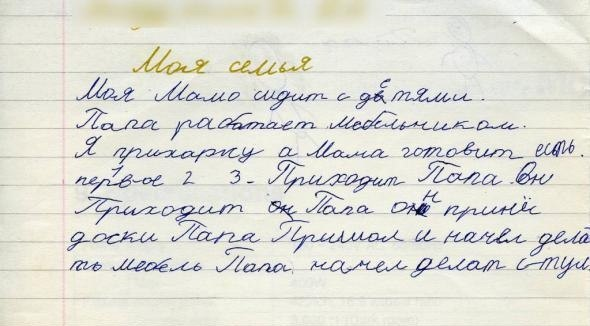 Моя семья
Моя Мамо сидит с детями.
Папа работает мебельником.
Я прихарку а Мама готовит есть.
первое 2 3 - Приходит Папа. Он
Приходит Папа он принёс
доски Папа Пришол и начел дела
ть мебель Папа начел делат стул